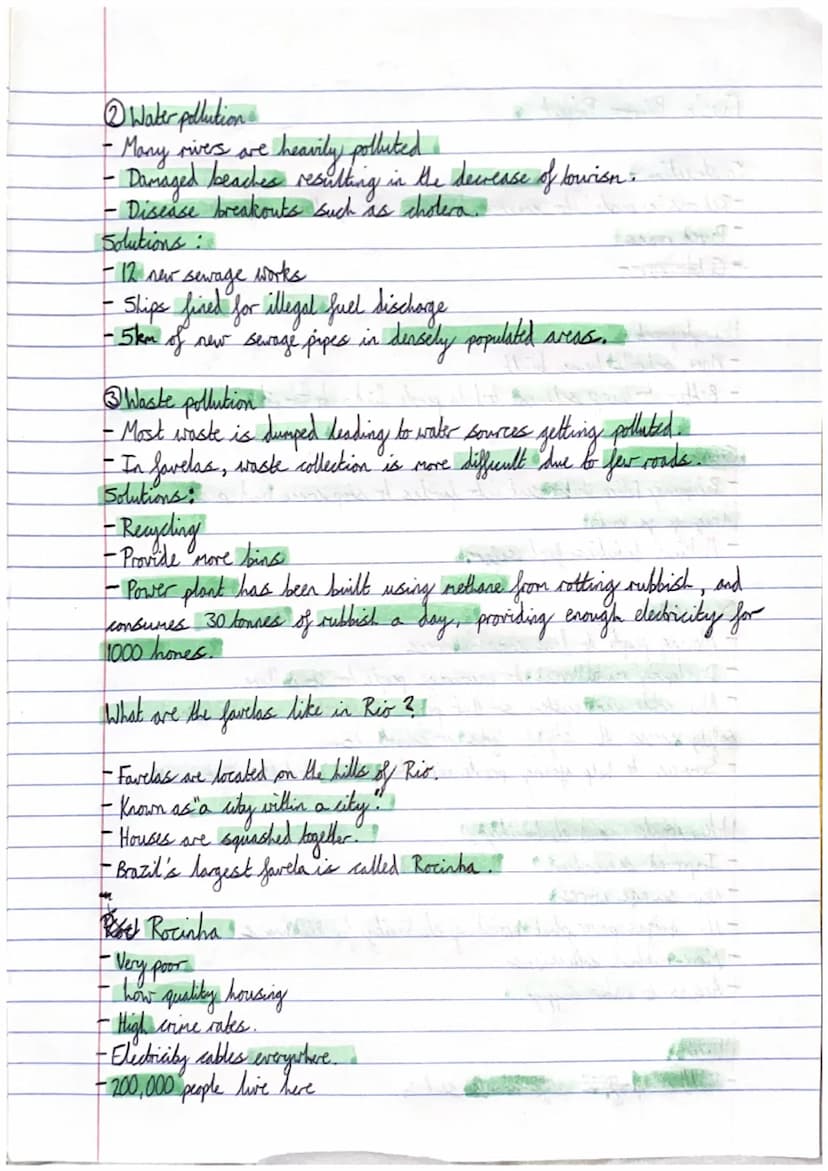 ② Water pollution
- Many rivers are heavily polluted
- Damaged beaches resulting in the decrease of tourism.
- Disease breakouts such as cholera.
Solutions :
- 12 new sewage works
- Ships fined for illegal fuel discharge
- 5km of new sewage pipes in densely populated areas.
③ Waste pollution
- Most waste is dumped leading to water sources getting polluted.
- In favelas, waste collection is more difficult due to few roads.
Solutions:
- Recycling
- Provide more bins
- Power plant has been built using methane from rotting rubbish, and
consumes 30 tonnes of rubbish a day, providing enough electricity for
1000 homes.
What are the favelas like in Rio ?
- Favelas are located on the hills of Rio.
- Known as "a city within a city".
- Houses are squashed together.
- Brazil's largest favela is called Rocinha.
Rocinha
- Very poor
- Low quality housing
- High crime rates.
- Electricity cables everywhere.
- 200,000 people live here